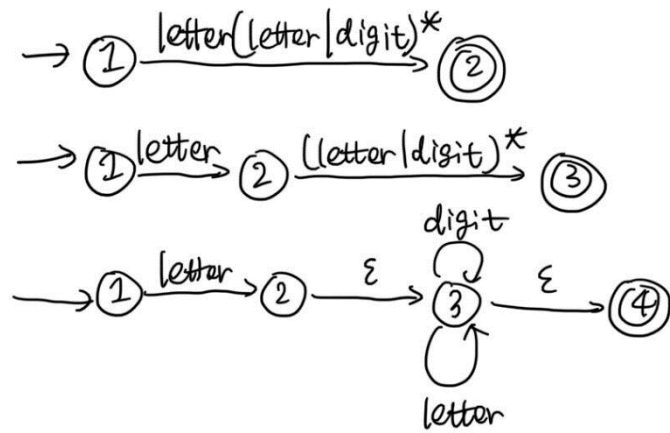 1 letter(letter|digit)* 2
1 letter 2 (letter|digit)* 3
digit
1 letter 2 ε 3 ε 4
letter